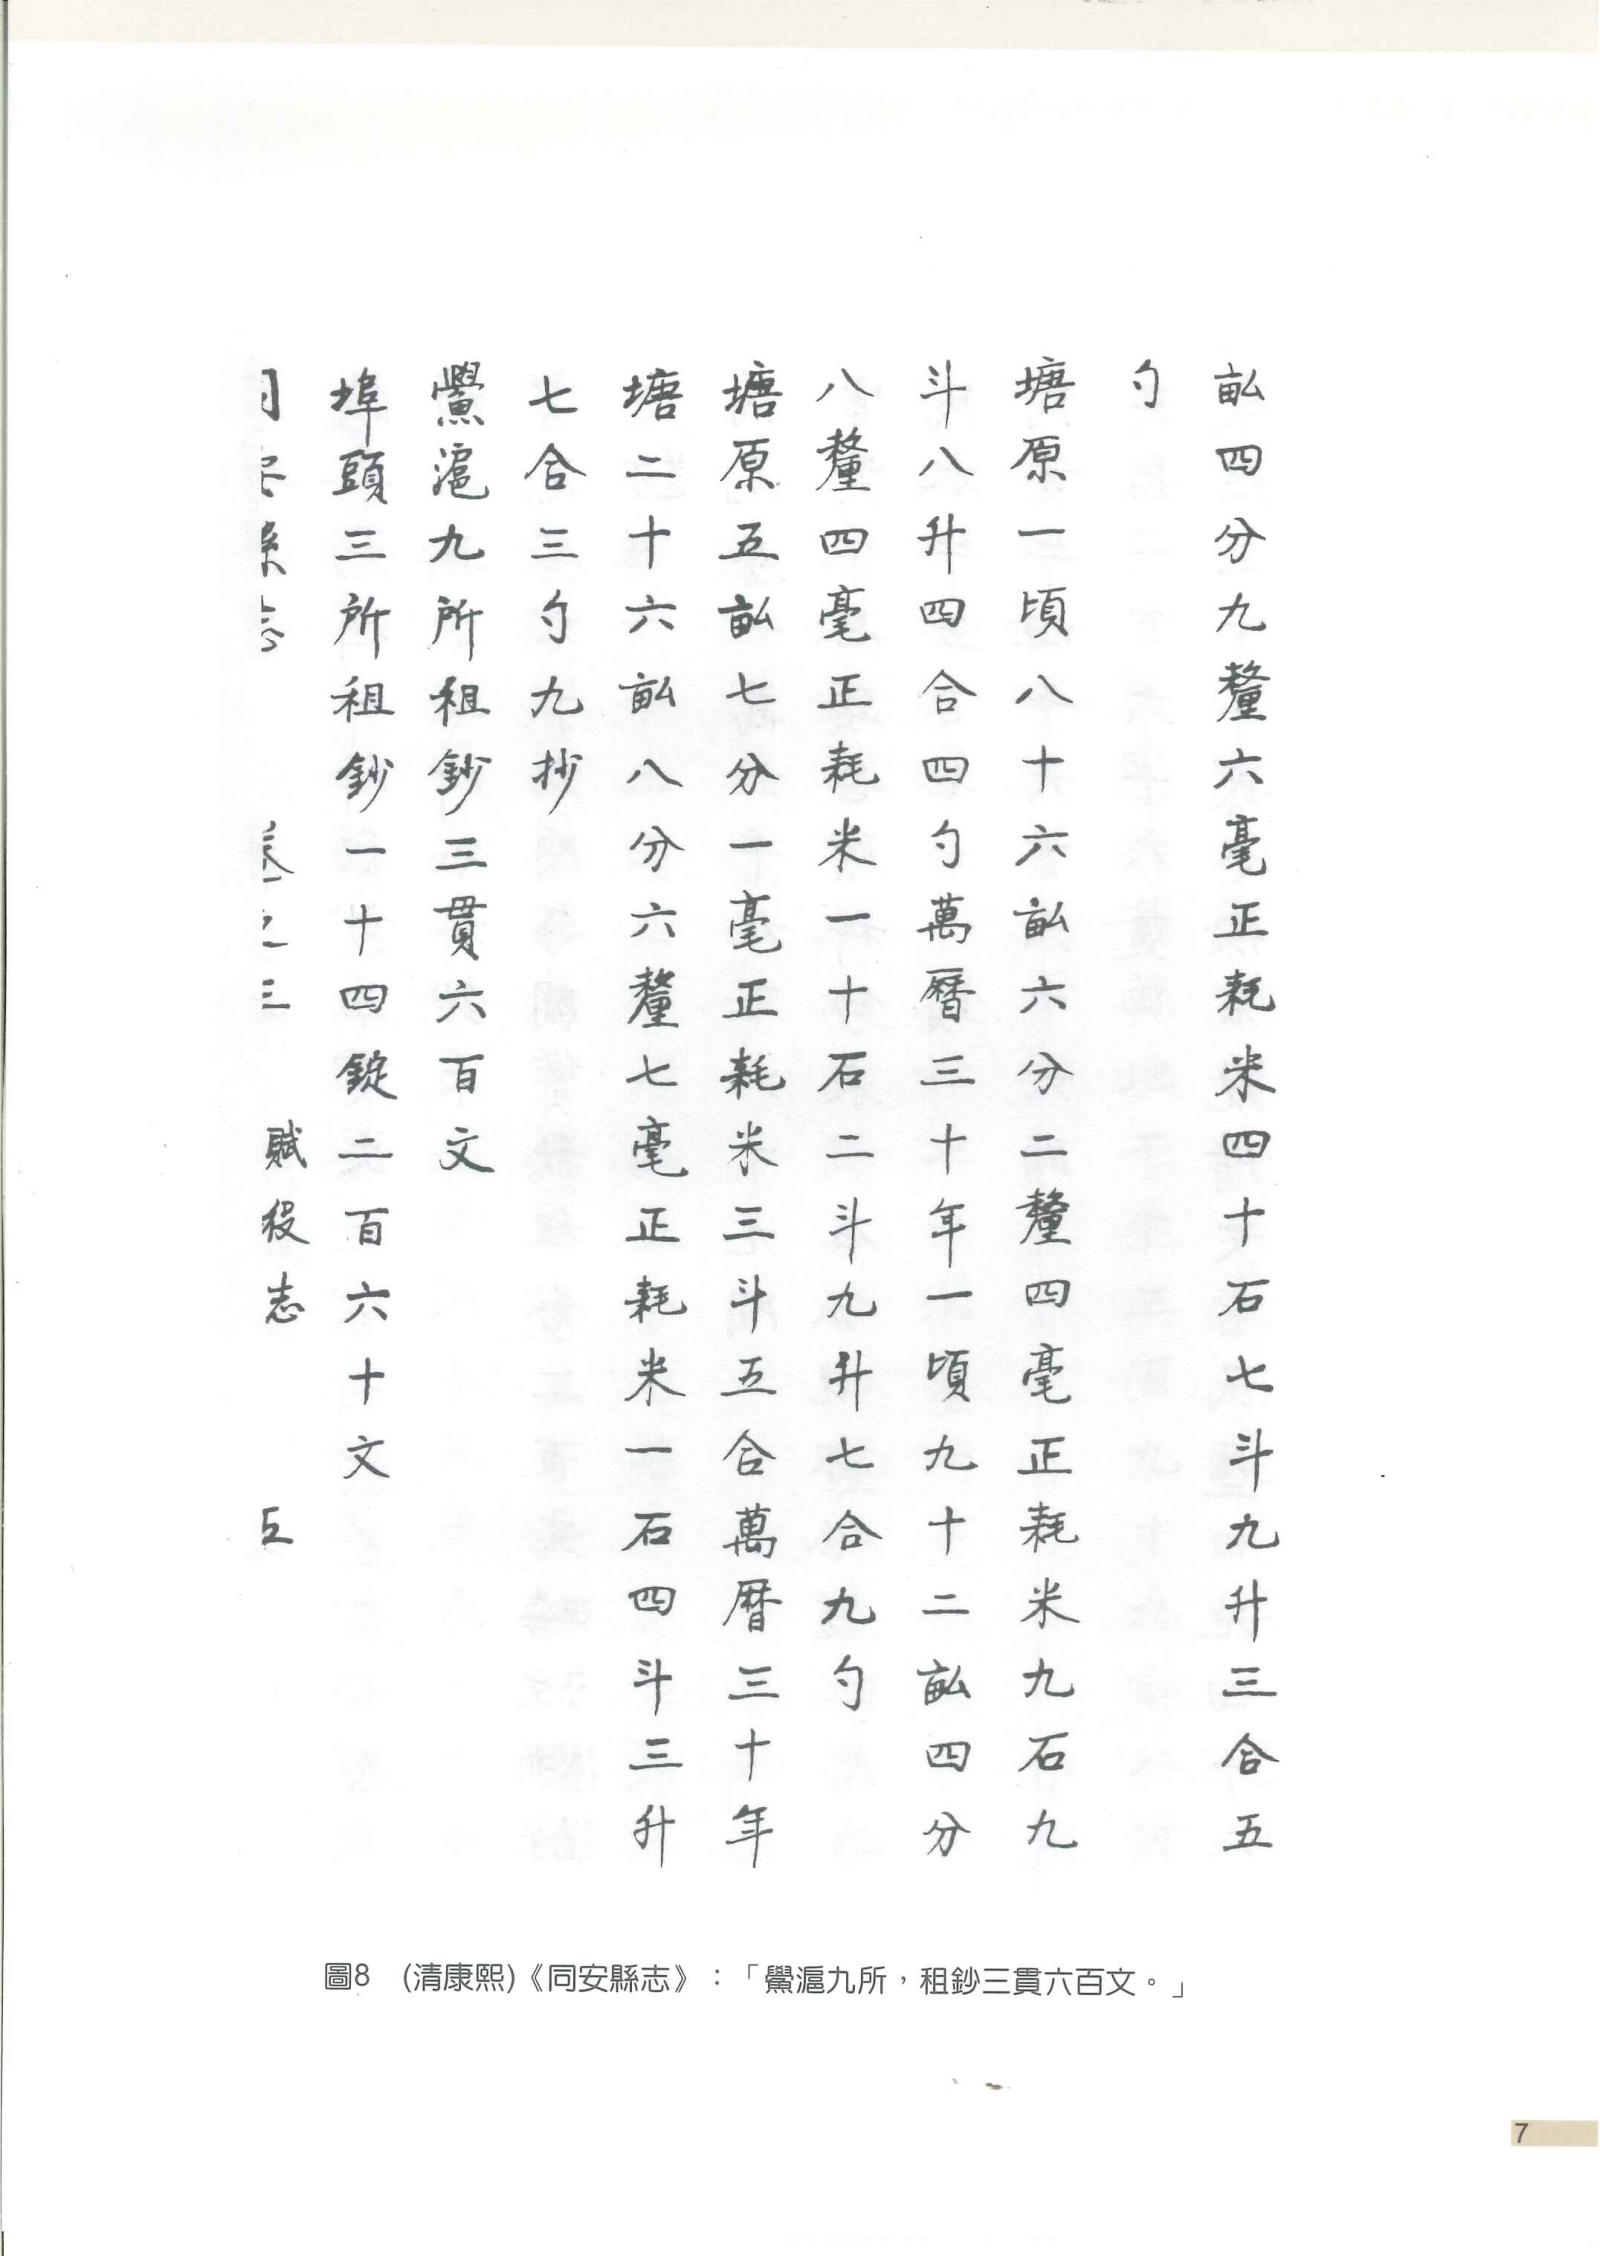 畝四分九釐六毫正耗米四十石七斗九升三合五
勺
塘原一頃八十六畝六分二釐四毫正耗米九石九
斗八升四合四勺萬曆三十年一頃九十二畝四分
八釐四毫正耗米一十石二斗九升七合九勺
塘原五畝七分一毫正耗米三斗五合萬曆三十年
塘二十六畝八分六釐七毫正耗米一石四斗三升
七合三勺九抄
鱟滬九所租鈔三貫六百文
埠頭三所租鈔一十四錠二百六十文
同安縣志 卷之三 賦役志 五
圖8 (清康熙)《同安縣志》：「鱟滬九所，租鈔三貫六百文。」
7